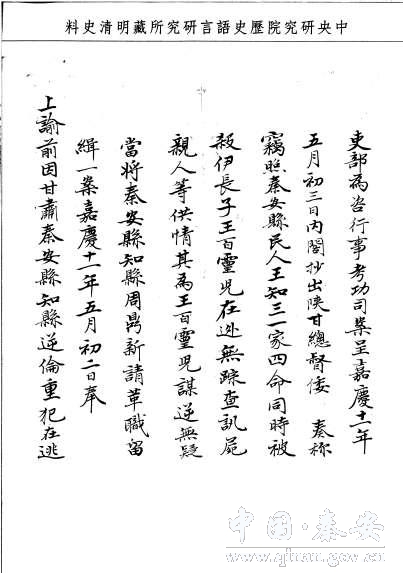 中央研究院歷史語言研究所藏明清史料
吏部為咨行事考功司案呈嘉慶十一年
五月初三日內閣抄出陝甘總督倭 奏称
竊照秦安縣民人王知三一家四命同時被
殺伊長子王百靈児在逃無踪查訊屍
親人等供情其為王百靈児謀逆無疑
當將秦安縣知縣周鼎新請革職留
緝一案嘉慶十一年五月初二日奉
上諭前因甘肅秦安縣知縣逆倫重犯在逃
中国·秦安
www.qinan.gov.cn